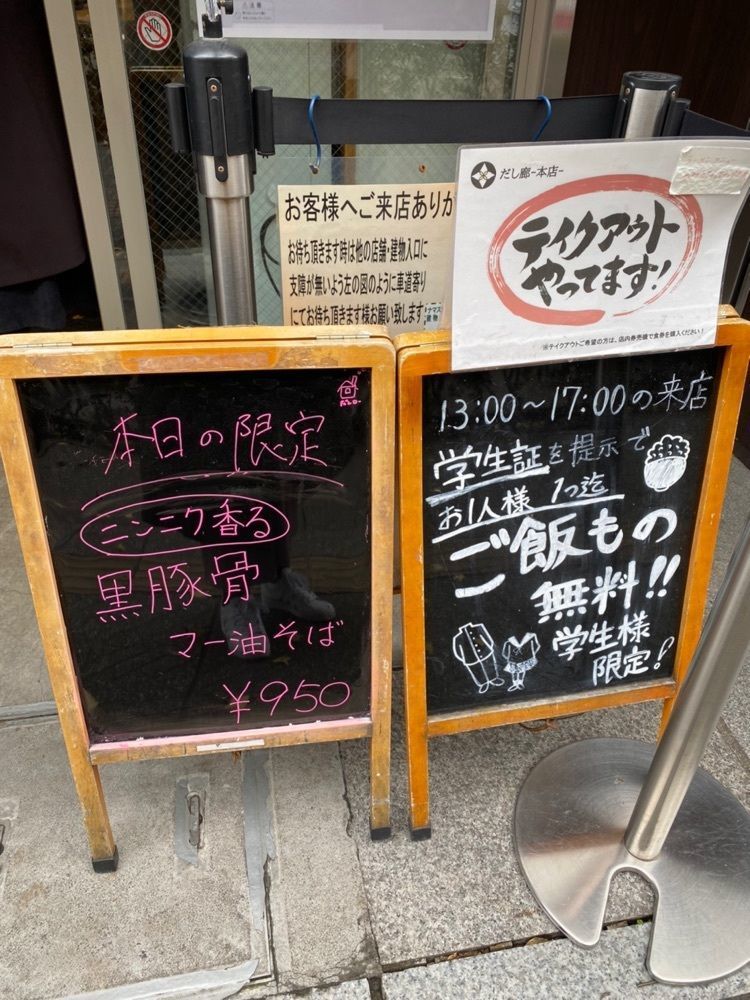 お客様へご来店ありが
お待ち頂きます時は他の店舗・建物入口に
支障が無いよう左の図のように車道寄り
にてお待ち頂きます様お願い致します
だし廊-本店-
テイクアウト
やってます!
※テイクアウトご希望の方は、店内券売機で食券を購入ください!
本日の限定
ニンニク香る
黒豚骨
マー油そば
¥950
13:00～17:00の来店
学生証を提示で
お1人様 1つ迄
ご飯もの
無料!!
学生様
限定!